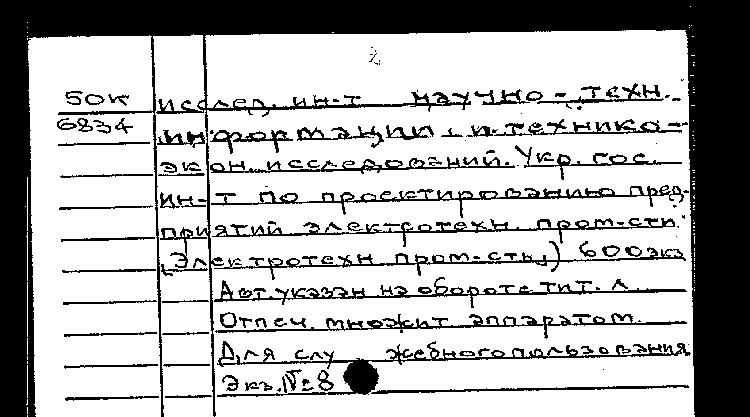 50К исслед. ин-т научно-техн.
6834 информации и технико-
экон. исследований. Укр. гос.
ин-т по проектированию пред-
приятий электротехн. пром-сти.
„Электротехн. пром-сть") 600 экз
Авт. указан на обороте тит. л.
Отпеч. множит аппаратом.
Для слу жебного пользования
Экз. №8